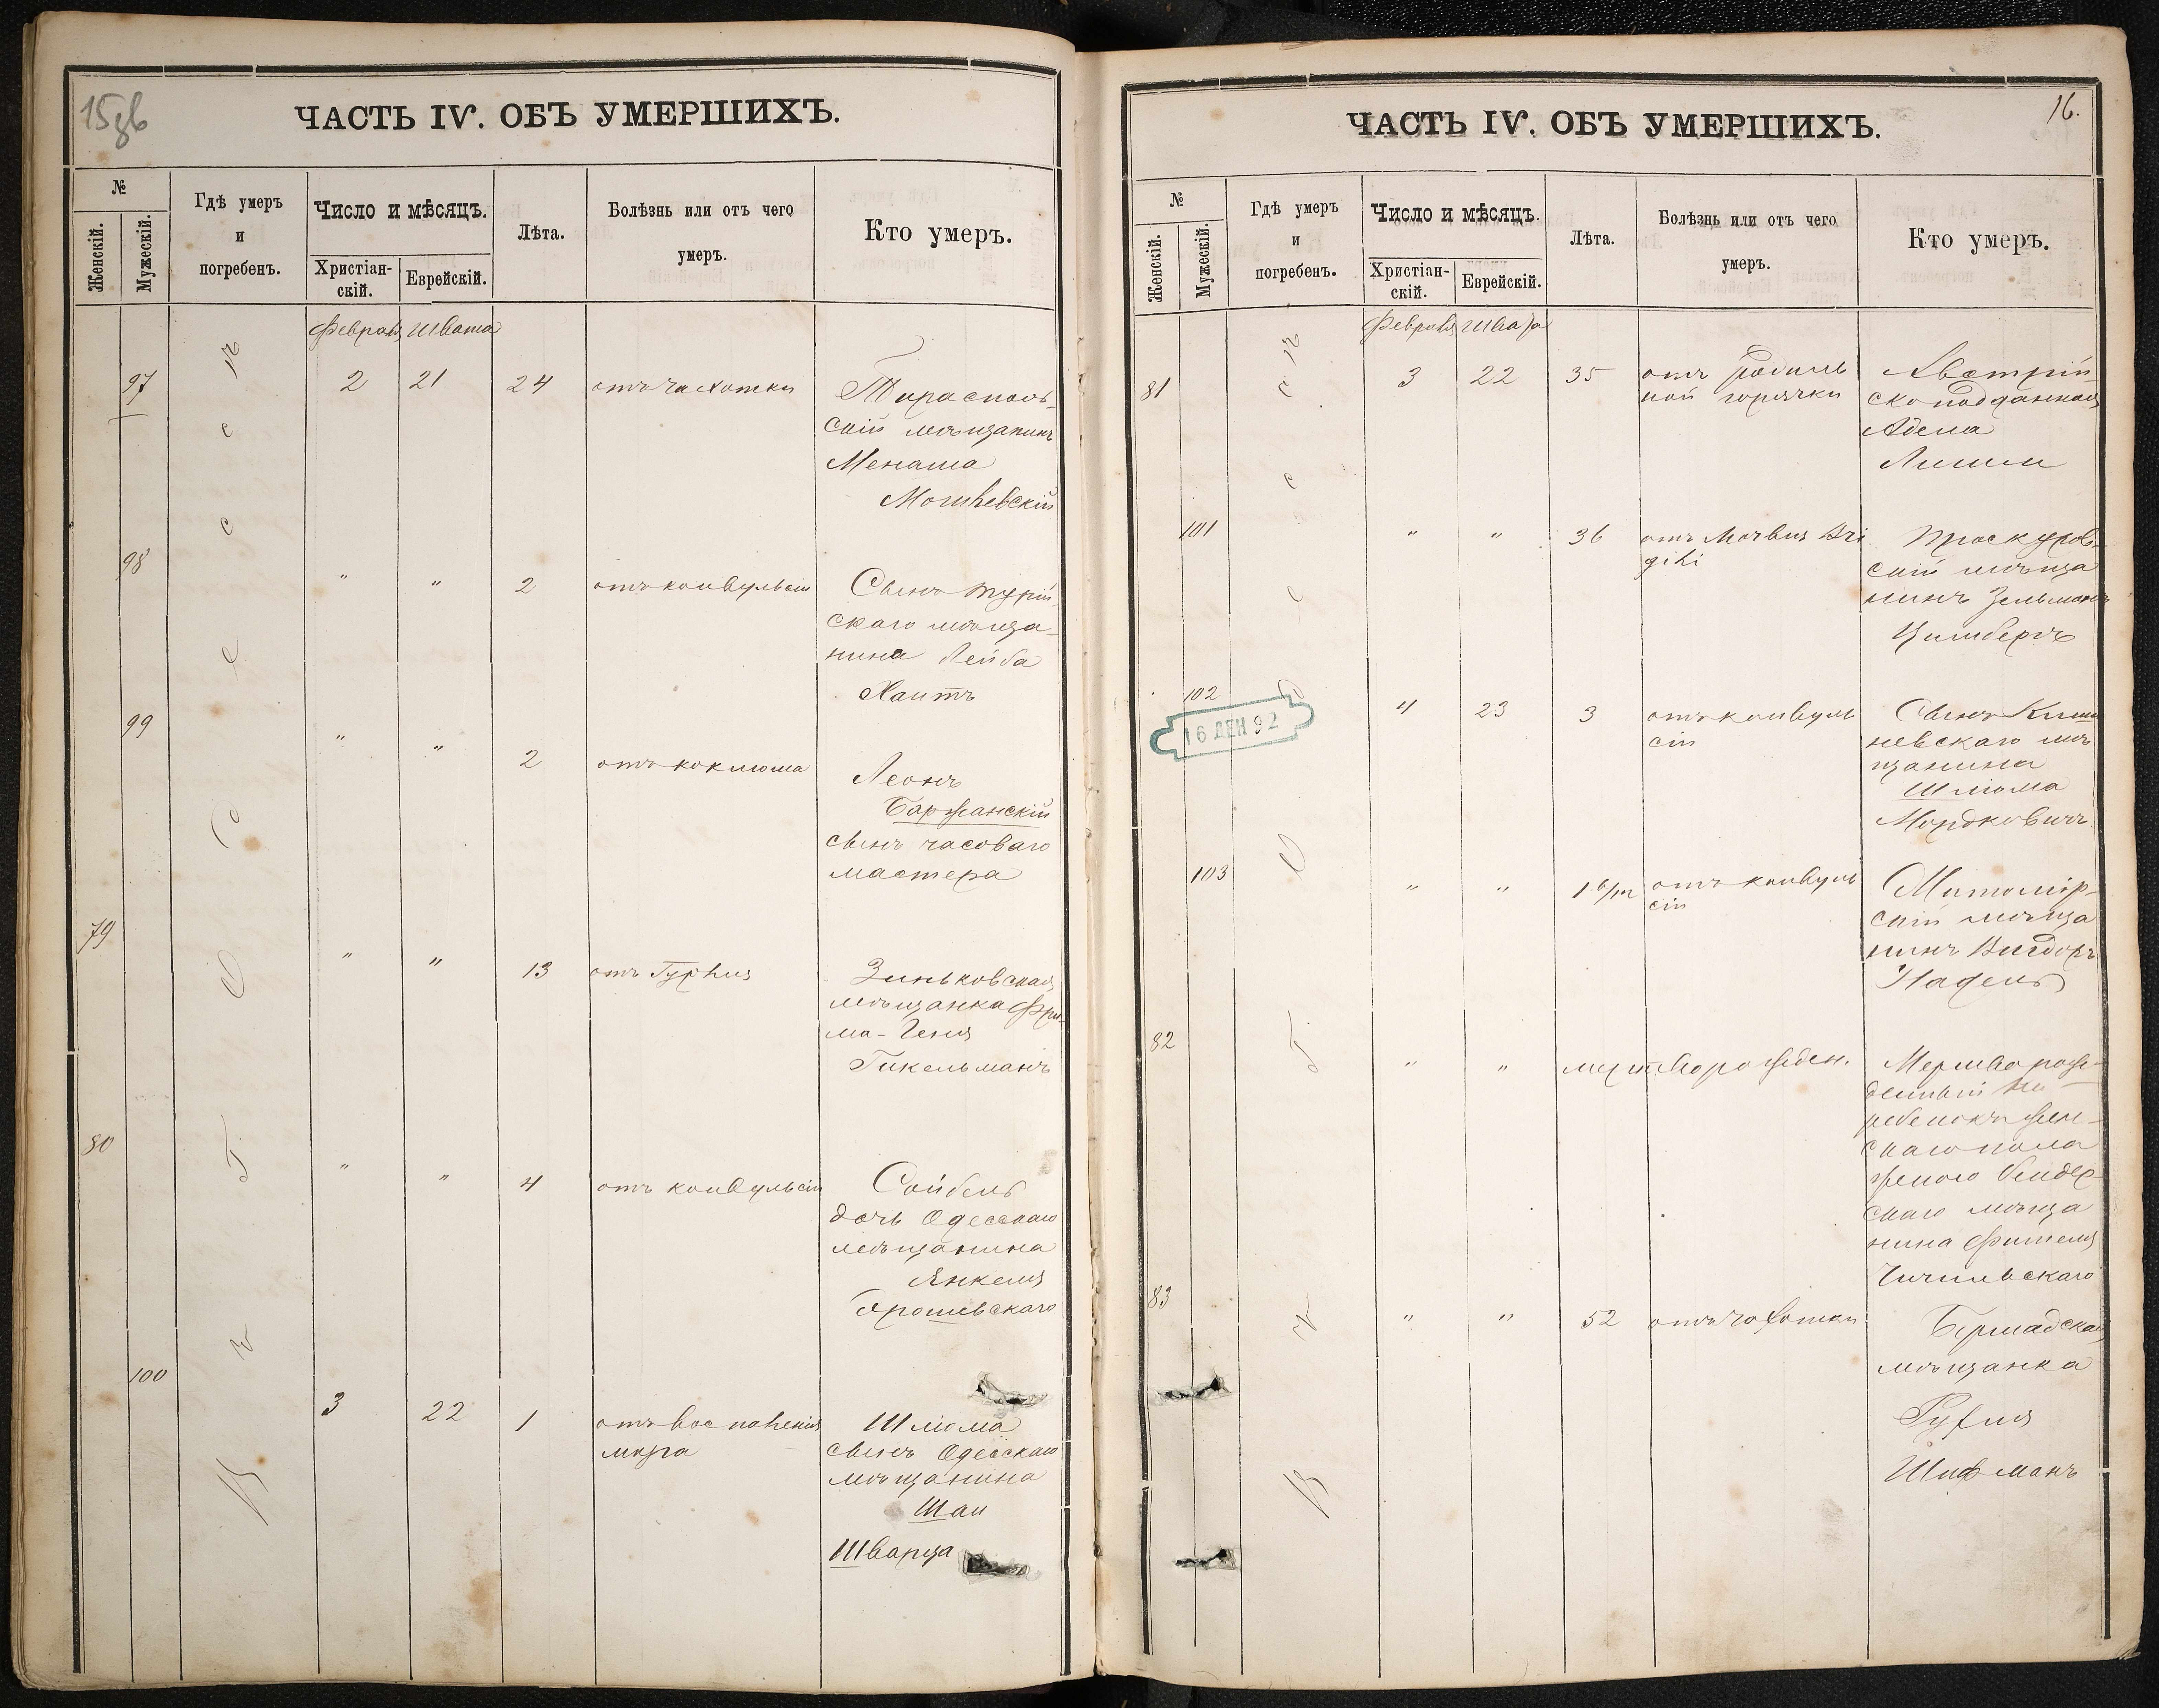 15зв
ЧАСТЬ IV. ОБЪ УМЕРШИХЪ.
№
Женскій.
Мужескій.
Гдѣ умеръ
и
погребенъ.
Число и мѣсяцъ.
Христіан-
скій.
Еврейскій.
Лѣта.
Болѣзнь или отъ чего
умеръ.
Кто умеръ.
Февраля Швата
97 2 21 24 отъ чахотки Тирасполь-
скій мѣщанинъ
Менаша
98 " " 2 отъ конвульсіи Сынъ Турій-
скаго мѣща-
нина Лейба
Хаитъ
99 " " 2 отъ коклюша Леонъ
Баржанскій
сынъ часоваго
мастера
79 " " 13 отъ Typhus Зиньковская
мѣщанка Фри-
ма-Геня
Гикельманъ
80 " " 4 отъ конвульсіи Сойбель
дочь Одесскаго
мѣщанина
Янкеля
Ярошевскаго
100 3 22 1 отъ воспаленія Шлиома
мозга сынъ Одесскаго
мѣщанина
Шаи
Шварца
В ъ О д е с с ѣ
16.
ЧАСТЬ IV. ОБЪ УМЕРШИХЪ.
№
Женскій.
Мужескій.
Гдѣ умеръ
и
погребенъ.
Число и мѣсяцъ.
Христіан-
скій.
Еврейскій.
Лѣта.
Болѣзнь или отъ чего
умеръ.
Кто умеръ.
Февраля Швата
81 3 22 35 отъ родиль Австрій-
ной горячки ско подданная
Адела
101 " " 36 отъ Morbus Bri Проскуров-
gihi скій мѣща
нинъ Зельманъ
Цимбергъ
102 4 23 3 отъ конвуль Сынъ Киши
сіи невскаго мѣ
щанина
Шлиома
Мордковичъ
16 ДЕН 92
103 " " отъ конвуль Житомір-
сіи скій мѣща
нинъ Вигдоръ
Надель
82 " " мертворожден. Мертворож-
денный
ребенокъ жен-
скаго пола
женою Бендер-
скаго мѣща
нина Фишеля
83 " " 52 отъ чахотки Бершадская
мѣщанка
Рухля
Шифманъ
В ъ О д е с с ѣ